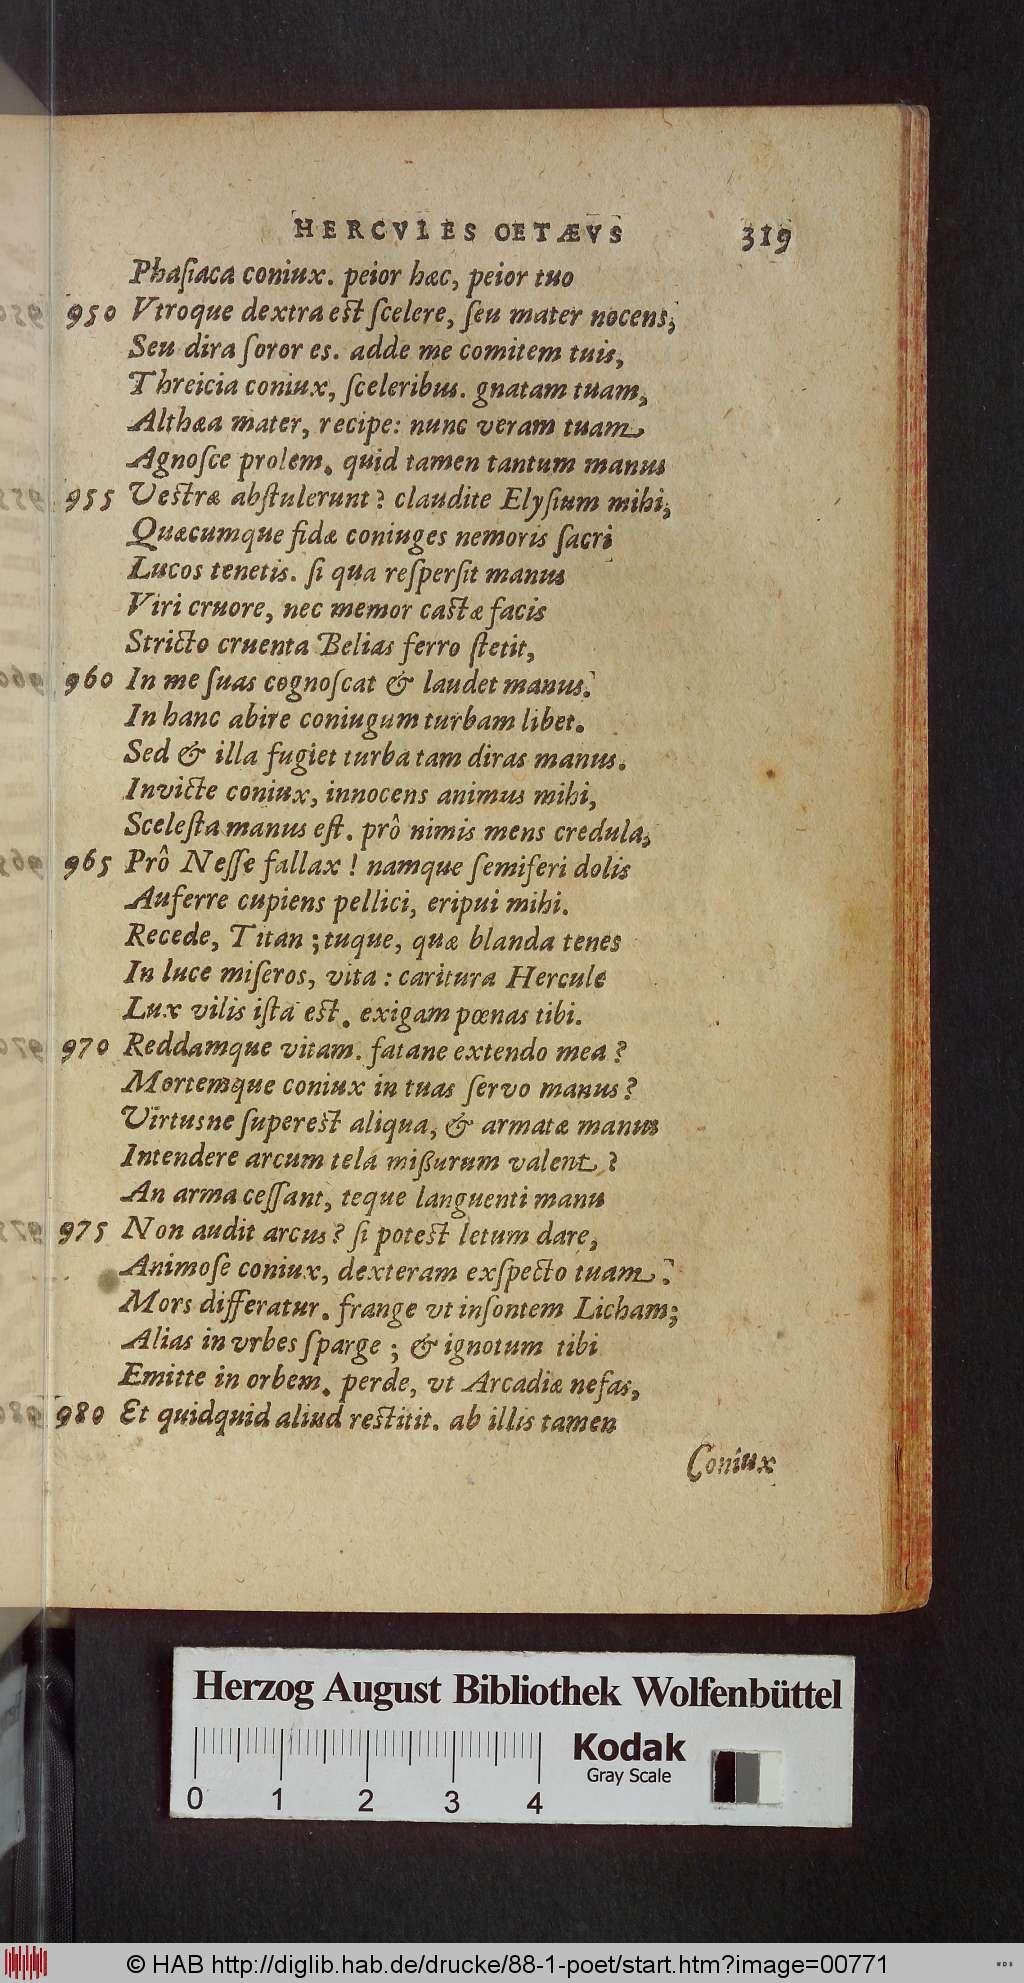 HERCVLES OETÆVS 319
Phaſiaca coniux. peior hæc, peior tuo
950 Vtroque dextra eſt ſcelere, ſeu mater nocens,
Seu dira ſoror es. adde me comitem tuis,
Threicia coniux, ſceleribus. gnatam tuam,
Althæa mater, recipe: nunc veram tuam
Agnoſce prolem. quid tamen tantum manus
955 Veſtræ abſtulerunt? claudite Elyſium mihi,
Quæcumque fidæ coniuges nemoris ſacri
Lucos tenetis. ſi qua reſperſit manus
Viri cruore, nec memor caſtæ facis
Stricto cruenta Belias ferro ſtetit,
960 In me ſuas cognoſcat & laudet manus.
In hanc abire coniugum turbam libet.
Sed & illa fugiet turba tam diras manus.
Invicte coniux, innocens animus mihi,
Sceleſta manus eſt. prô nimis mens credula,
965 Prô Neſſe fallax! namque ſemiferi dolis
Auferre cupiens pellici, eripui mihi.
Recede, Titan; tuque, quæ blanda tenes
In luce miſeros, vita: caritura Hercule
Lux vilis iſta eſt. exigam pœnas tibi.
970 Reddamque vitam. fatane extendo mea?
Mortemque coniux in tuas ſervo manus?
Virtusne ſupereſt aliqua, & armatæ manus
Intendere arcum tela mißurum valent?
An arma ceſſant, teque languenti manu
975 Non audit arcus? ſi poteſt letum dare,
Animoſe coniux, dexteram exſpecto tuam.
Mors differatur. frange vt inſontem Licham;
Alias in vrbes ſparge; & ignotum tibi
Emitte in orbem. perde, vt Arcadiæ nefas,
980 Et quidquid aliud reſtitit. ab illis tamen
Coniux
Herzog August Bibliothek Wolfenbüttel
Kodak
Gray Scale
0 1 2 3 4
© HAB http://diglib.hab.de/drucke/88-1-poet/start.htm?image=00771